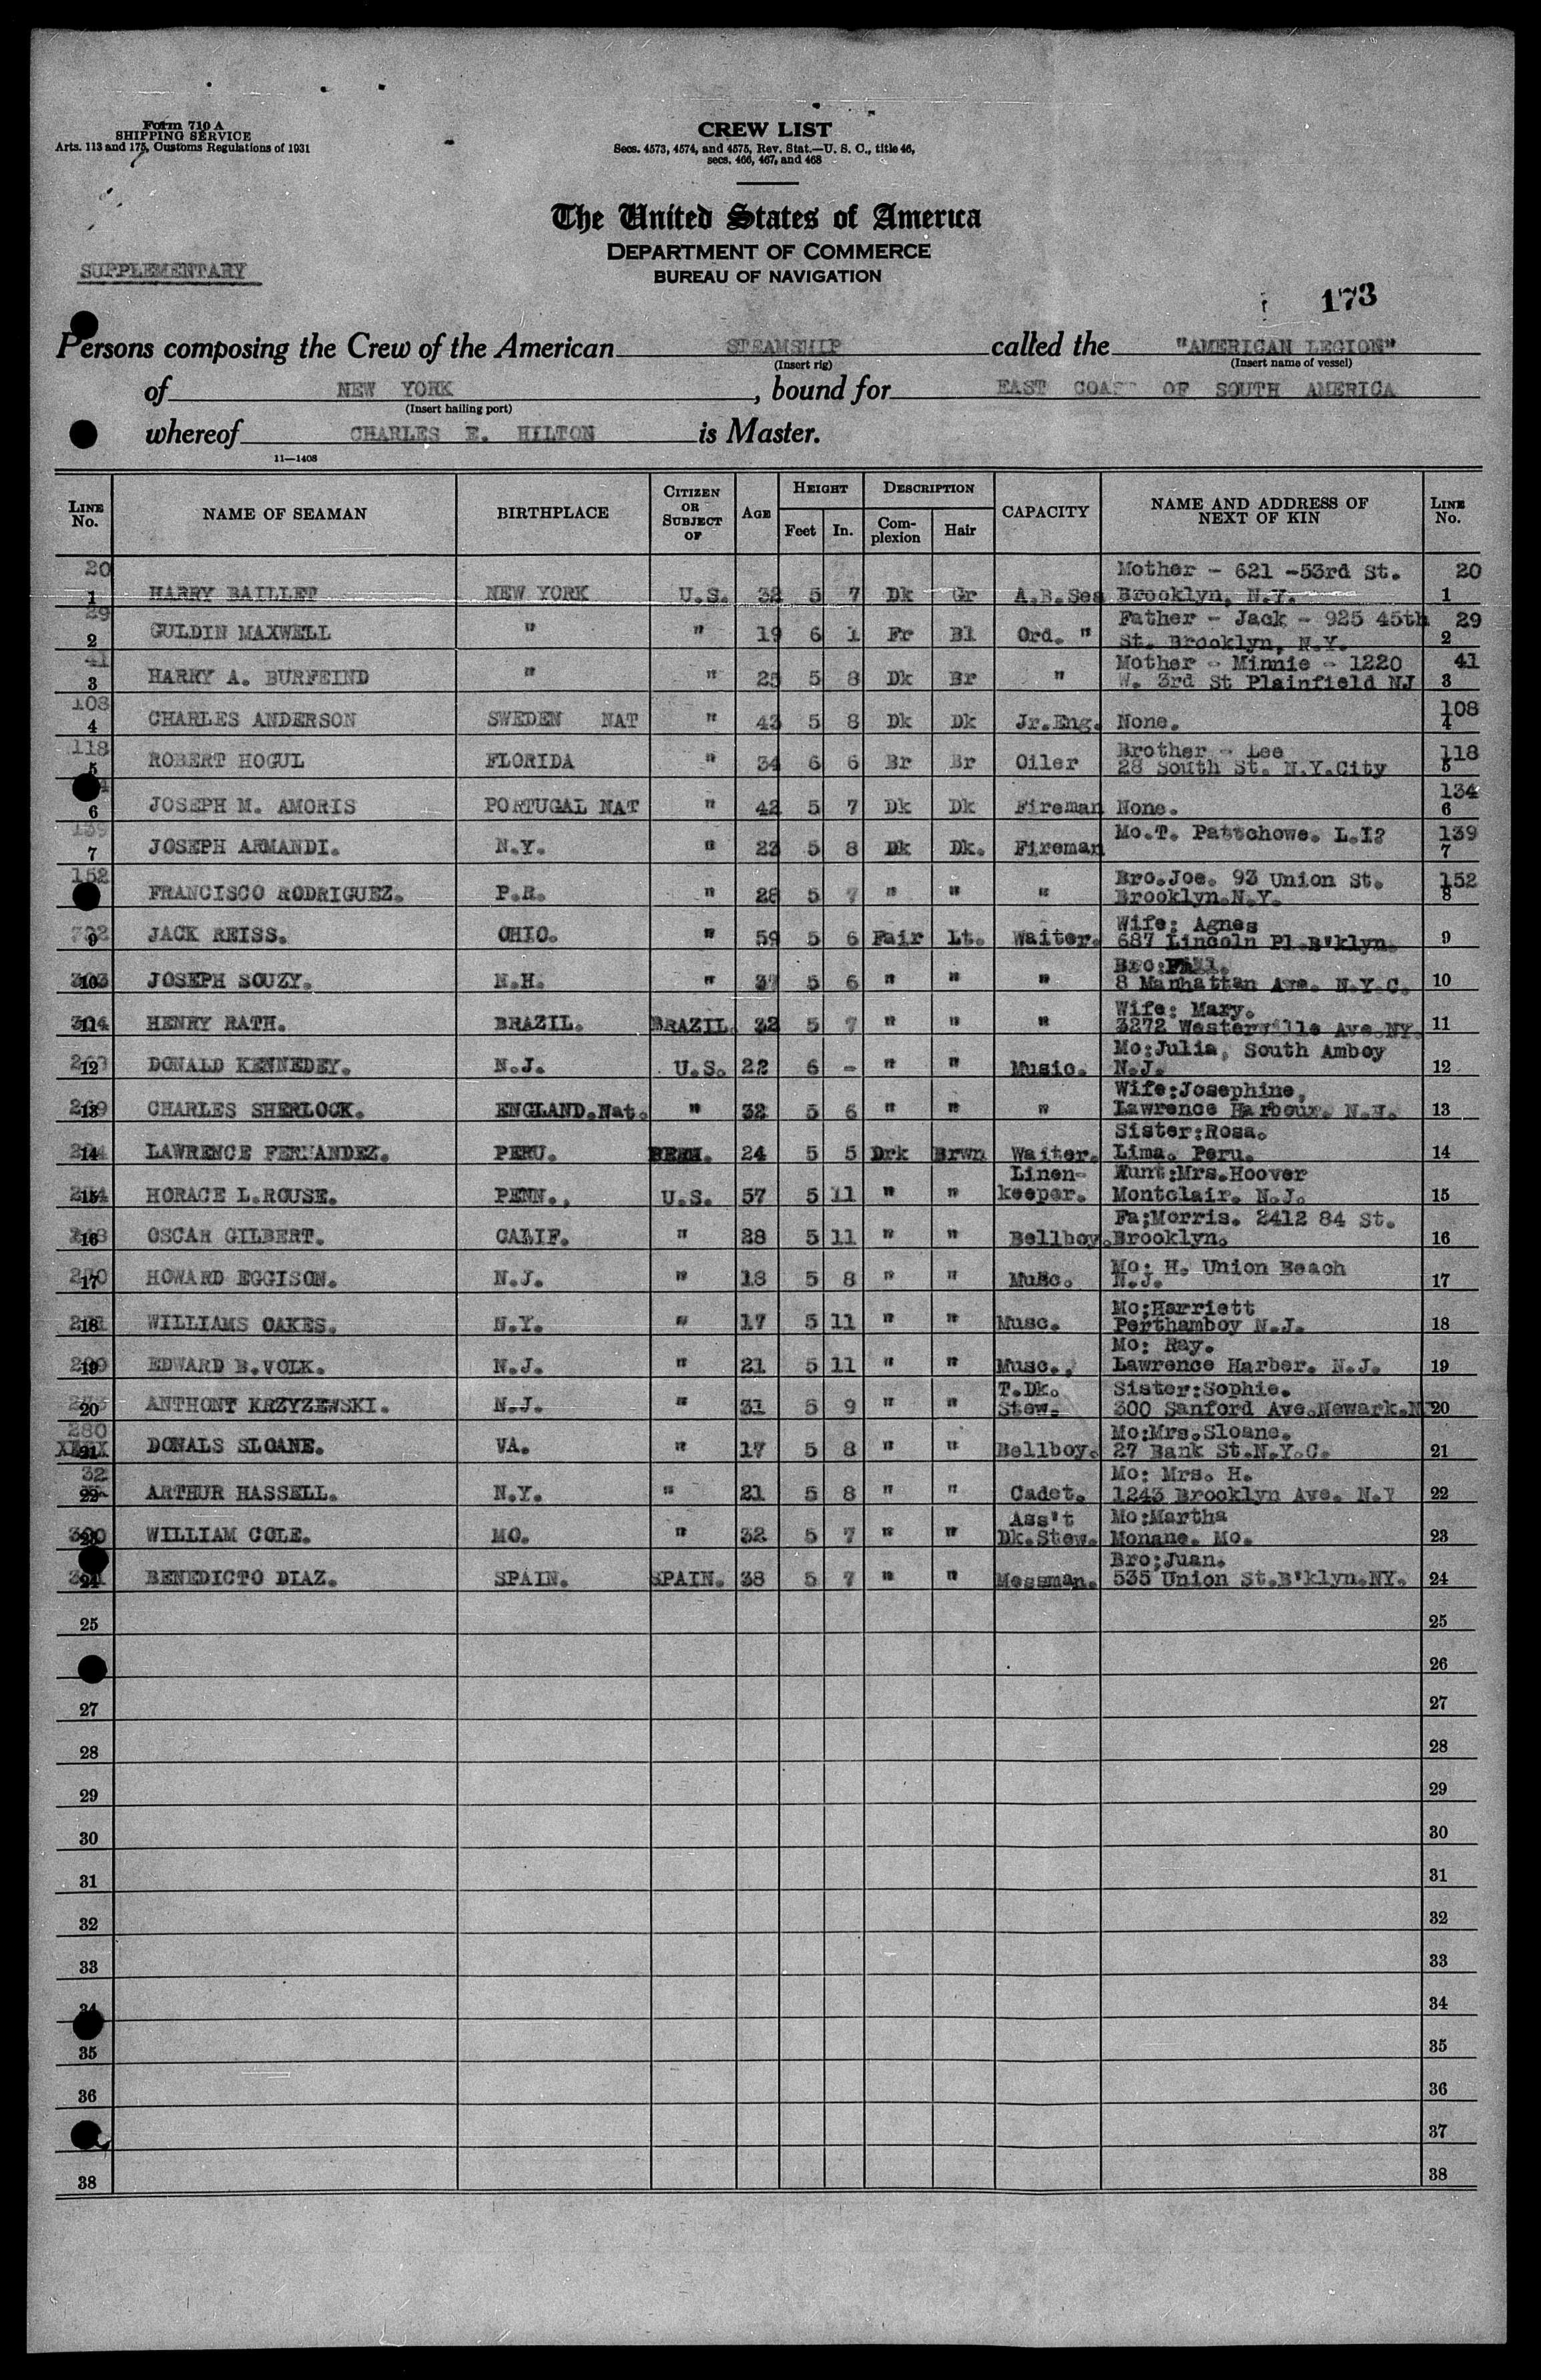 Form 710 A
SHIPPING SERVICE
Arts. 113 and 175, Customs Regulations of 1931
CREW LIST
Secs. 4573, 4574, and 4575, Rev. Stat.—U. S. C., title 46,
secs. 466, 467, and 468
The United States of America
DEPARTMENT OF COMMERCE
BUREAU OF NAVIGATION
SUPPLEMENTARY
173
Persons composing the Crew of the American STEAMSHIP called the "AMERICAN LEGION"
(Insert rig) (Insert name of vessel)
of NEW YORK, bound for EAST COAST OF SOUTH AMERICA
(Insert hailing port)
whereof CHARLES E. HILTON is Master.
11—1408
LINE No. NAME OF SEAMAN BIRTHPLACE CITIZEN OR SUBJECT OF AGE HEIGHT Feet In. DESCRIPTION Complexion Hair CAPACITY NAME AND ADDRESS OF NEXT OF KIN LINE No.
20 Mother - 621 -53rd St. 20
1 HARRY BAILLET NEW YORK U.S. 32 5 7 Dk Gr A.B.Sea Brooklyn, N.Y. 1
29 Father - Jack - 925 45th 29
2 GULDIN MAXWELL " " 19 6 1 Fr Bl Ord. " St. Brooklyn, N.Y. 2
41 Mother - Minnie - 1220 41
3 HARRY A. BURFEIND " " 25 5 8 Dk Br " W. 3rd St Plainfield NJ 3
108 108
4 CHARLES ANDERSON SWEDEN NAT " 43 5 8 Dk Dk Jr.Eng. None. 4
118 Brother - Lee 118
5 ROBERT HOGUL FLORIDA " 34 6 6 Br Br Oiler 28 South St. N.Y.City 5
134
6 JOSEPH M. AMORIS PORTUGAL NAT " 42 5 7 Dk Dk Fireman None. 6
139 Mo.T. Pattchowe. L.I? 139
7 JOSEPH ARMANDI. N.Y. " 23 5 8 Dk Dk. Fireman 7
152 Bro.Joe. 93 Union St. 152
FRANCISCO RODRIGUEZ. P.R. " 28 5 7 " " " Brooklyn.N.Y. 8
Wife: Agnes
9 JACK REISS. OHIO. " 59 5 6 Fair Lt. Waiter. 687 Lincoln Pl.B'klyn. 9
Bro:
10 JOSEPH SOUZY. N.H. " 37 5 6 " " " 8 Manhattan Ave. N.Y.C. 10
Wife: Mary.
11 HENRY RATH. BRAZIL. BRAZIL. 32 5 7 " " " 3272 Westerville Ave NY. 11
Mo:Julia, South Amboy
12 DONALD KENNEDEY. N.J. U.S. 22 6 - " " Music. N.J. 12
Wife:Josephine,
13 CHARLES SHERLOCK. ENGLAND.Nat. " 32 5 6 " " " Lawrence Harbour. N.J. 13
Sister:Rosa.
14 LAWRENCE FERNANDEZ. PERU. 24 5 5 Drk Brwn Waiter. Lima. Peru. 14
Linen- Aunt:Mrs.Hoover
15 HORACE L.ROUSE. PENN., U.S. 57 5 11 " " keeper. Montclair. N.J. 15
Fa;Morris. 2412 84 St.
16 OSCAR GILBERT. CALIF. " 28 5 11 " " Bellboy. Brooklyn. 16
Mo: H. Union Beach
17 HOWARD EGGISON. N.J. " 18 5 8 " " Musc. N.J. 17
Mo;Harriett
18 WILLIAMS OAKES. N.Y. " 17 5 11 " " Musc. Perthamboy N.J. 18
Mo: Ray.
19 EDWARD B.VOLK. N.J. " 21 5 11 " " Musc., Lawrence Harber. N.J. 19
T.Dk. Sister:Sophie.
20 ANTHONT KRZYZEWSKI. N.J. " 31 5 9 " " Stew. 300 Sanford Ave.Newark.N 20
280 Mo:Mrs.Sloane.
21 DONALS SLOANE. VA. " 17 5 8 " " Bellboy. 27 Bank St.N.Y.C. 21
32 Mo: Mrs. H.
22 ARTHUR HASSELL. N.Y. " 21 5 8 " " Cadet. 1243 Brooklyn Ave. N.Y 22
Ass't Mo:Martha
23 WILLIAM COLE. MO. " 32 5 7 " " Dk.Stew. Monane. Mo. 23
Bro;Juan.
24 BENEDICTO DIAZ. SPAIN. SPAIN. 38 5 7 " " Messman. 535 Union St.B'klyn.NY. 24
25 25
26
27 27
28 28
29 29
30 30
31 31
32 32
33 33
34 34
35 35
36 36
37
38 38